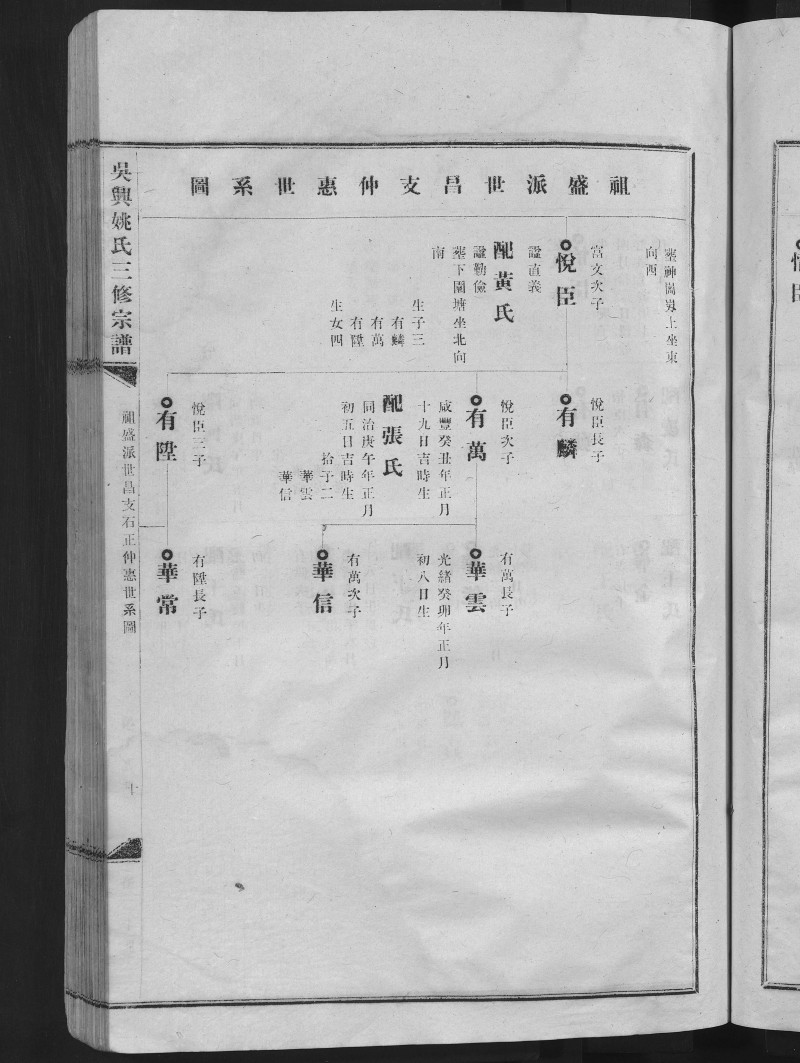 祖盛派世昌支仲惠世系圖
塟神岡㘭上坐東
向西
富文次子
悅臣
諡直義
配黃氏
諡勤儉
塟下園塘坐北向
南
生子三
有麟
有萬
有陞
生女四
悅臣長子
有麟
悅臣次子
有萬
咸豐癸丑年正月
十九日吉時生
配張氏
同治庚午年正月
初五日吉時生
拾子二
華雲
華信
悅臣三子
有陞
有萬長子
華雲
光緒癸卯年正月
初八日生
有萬次子
華信
有陞長子
華常
吳興姚氏三修宗譜
祖盛派世昌支石正仲惠世系圖
悅臣